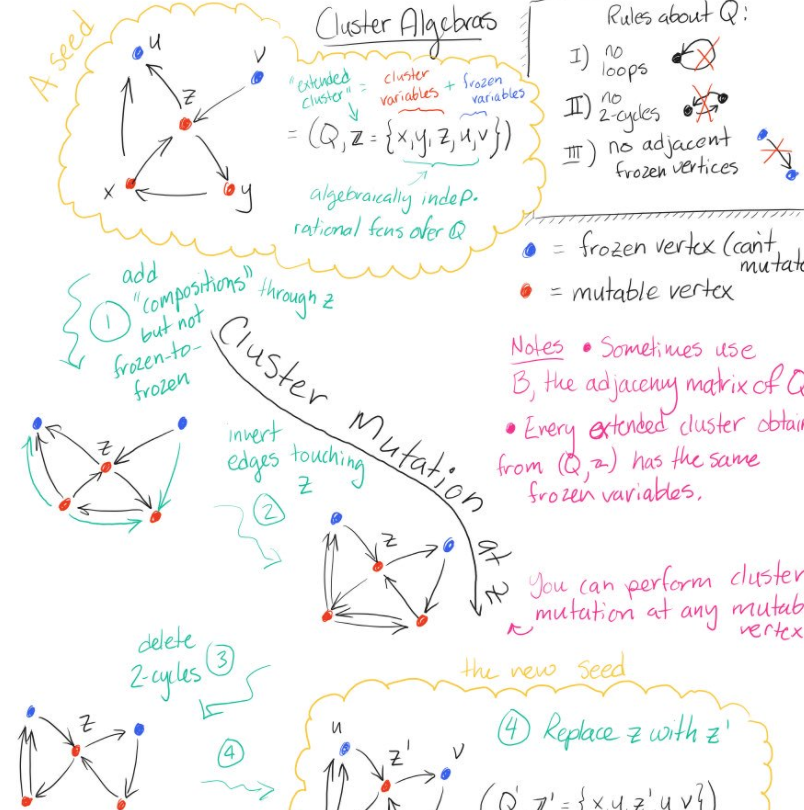 Cluster Algebras
A seed
u
v
z
x
y
"extended cluster" = cluster variables + frozen variables
= (Q, z = {x,y,z,u,v})
algebraically indep.
rational fcns over Q
Rules about Q:
I) no loops
II) no 2-cycles
III) no adjacent
frozen vertices
= frozen vertex (can't
mutate
= mutable vertex
1
add
"compositions" through z
but not
frozen-to-
frozen
Cluster Mutation at z
Notes • Sometimes use
B, the adjacency matrix of Q
• Every extended cluster obtain
from (Q,z) has the same
frozen variables.
z
invert
edges touching
z
2
z
You can perform cluster
mutation at any mutab
vertex
delete
2-cycles 3
z
4
the new seed
4 Replace z with z'
u
z'
v
(Q', z' = {x,y,z',u,v})